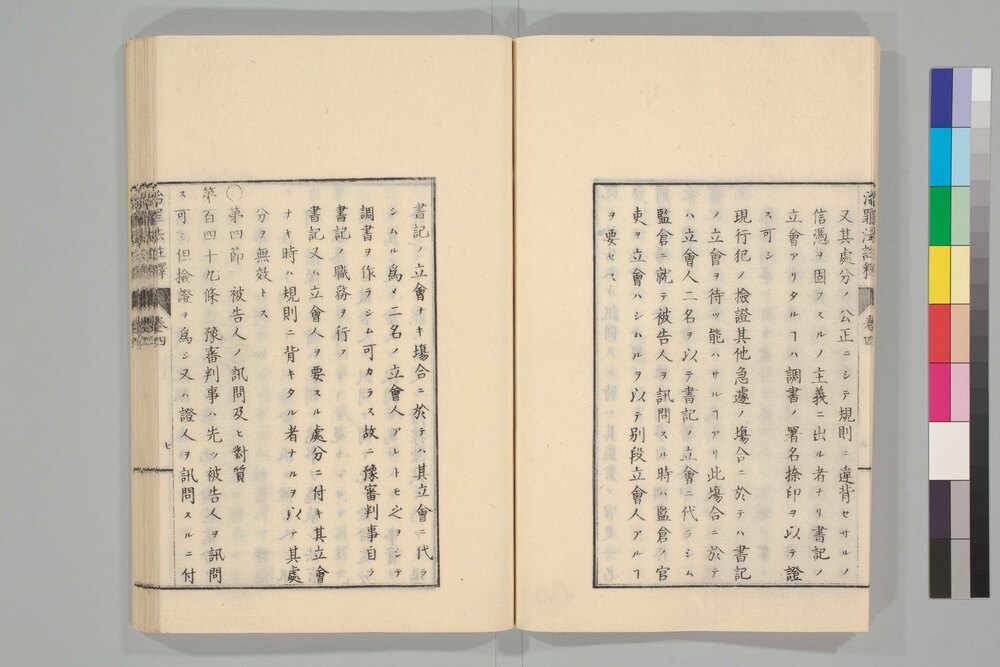 又其處分ノ公正ニシテ規則ニ違背セサルノ
信憑ヲ固フスルノ主義ニ出ル者ナリ書記ノ
立會アリタルヿハ調書ノ署名捺印ヲ以テ證
ス可シ
現行犯ノ撿證其他急遽ノ塲合ニ於テハ書記
ノ立會ヲ待ツ能ハサルヿアリ此塲合ニ於テ
ハ立會人二名ヲ以テ書記ノ立會ニ代ラシム
監倉ニ就テ被告人ヲ訊問スル時ハ監倉ノ官
吏ヲ立會ハシムルヲ以テ別段立會人アルヿ
ヲ要セス
書記ノ立會ナキ塲合ニ於テハ其立會ニ代ラ
シムル爲メ二名ノ立會人アレトモ之ヲシテ
調書ヲ作ラシム可カラス故ニ豫審判事自ラ
書記ノ職務ヲ行フ
書記又ハ立會人ヲ要スル處分ニ付キ其立會
ナキ時ハ規則ニ背キタル者ナルヲ以テ其處
分ヲ無效トス
〇第四節 被告人ノ訊問及ヒ對質
第百四十九條 豫審判事ハ先ツ被告人ヲ訊問
ス可シ但撿證ヲ爲シ又ハ證人ヲ訊問スルニ付
治罪法註釋 卷四
七